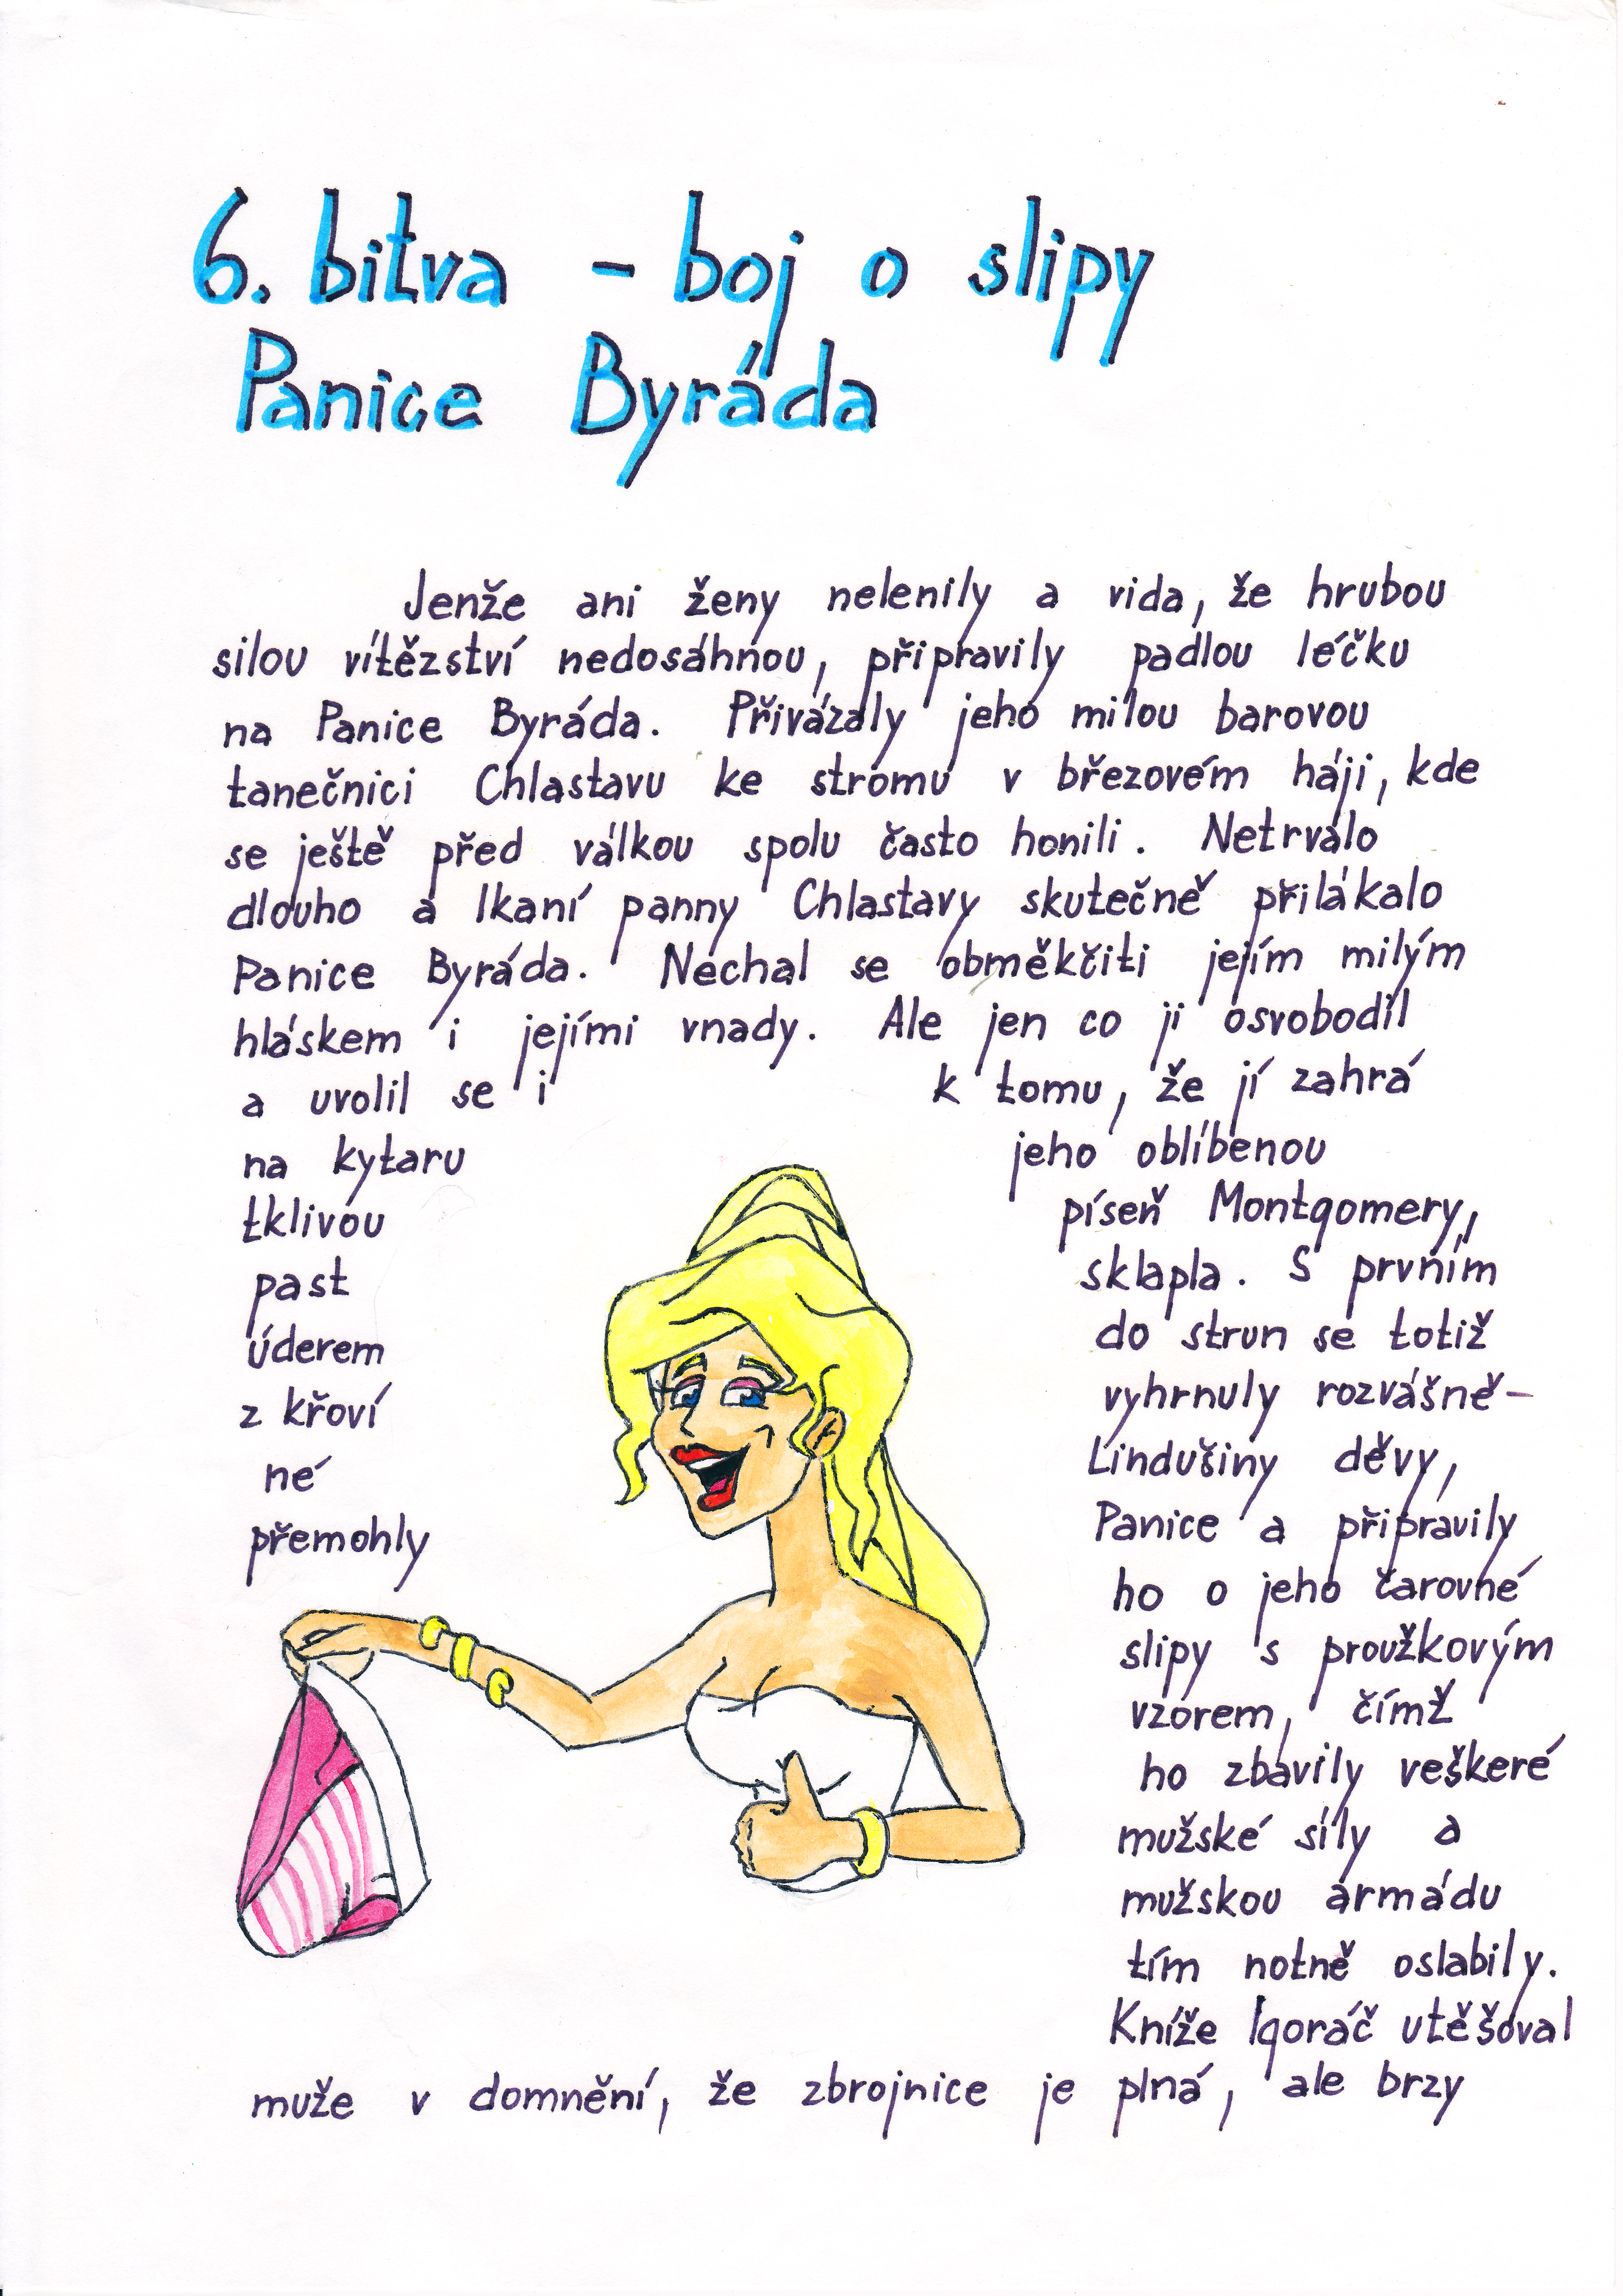 6. bitva - boj o slipy
Panice Byráda
Jenže ani ženy nelenily a vida, že hrubou
silou vítězství nedosáhnou, připravily padlou léčku
na Panice Byráda. Přivázaly jeho milou barovou
tanečnici Chlastavu ke stromu v březovém háji, kde
se ještě před válkou spolu často honili. Netrválo
dlouho a lkaní panny Chlastavy skutečně přilákalo
Panice Byráda. Nechal se obměkčiti jejím milým
hláskem i jejími vnady. Ale jen co ji osvobodil
a uvolil se i k tomu, že jí zahrá
na kytaru jeho oblíbenou
tklivou píseň Montgomery,
past sklapla. S prvním
úderem do strun se totiž
z křoví vyhrnuly rozvášně-
né Lindušiny děvy,
přemohly Panice a připravily
ho o jeho čarovné
slipy s proužkovým
vzorem, čímž
ho zbavily veškeré
mužské síly a
mužskou armádu
tím notně oslabily.
Kníže Igoráč utěšoval
muže v domnění, že zbrojnice je plná, ale brzy